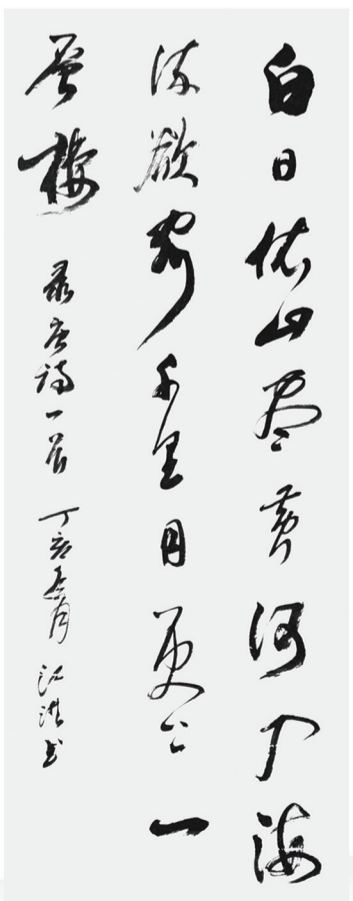 白日依山尽黄河入海
流欲穷千里目更上一
層樓 录唐诗一首 丁亥月 江洪书